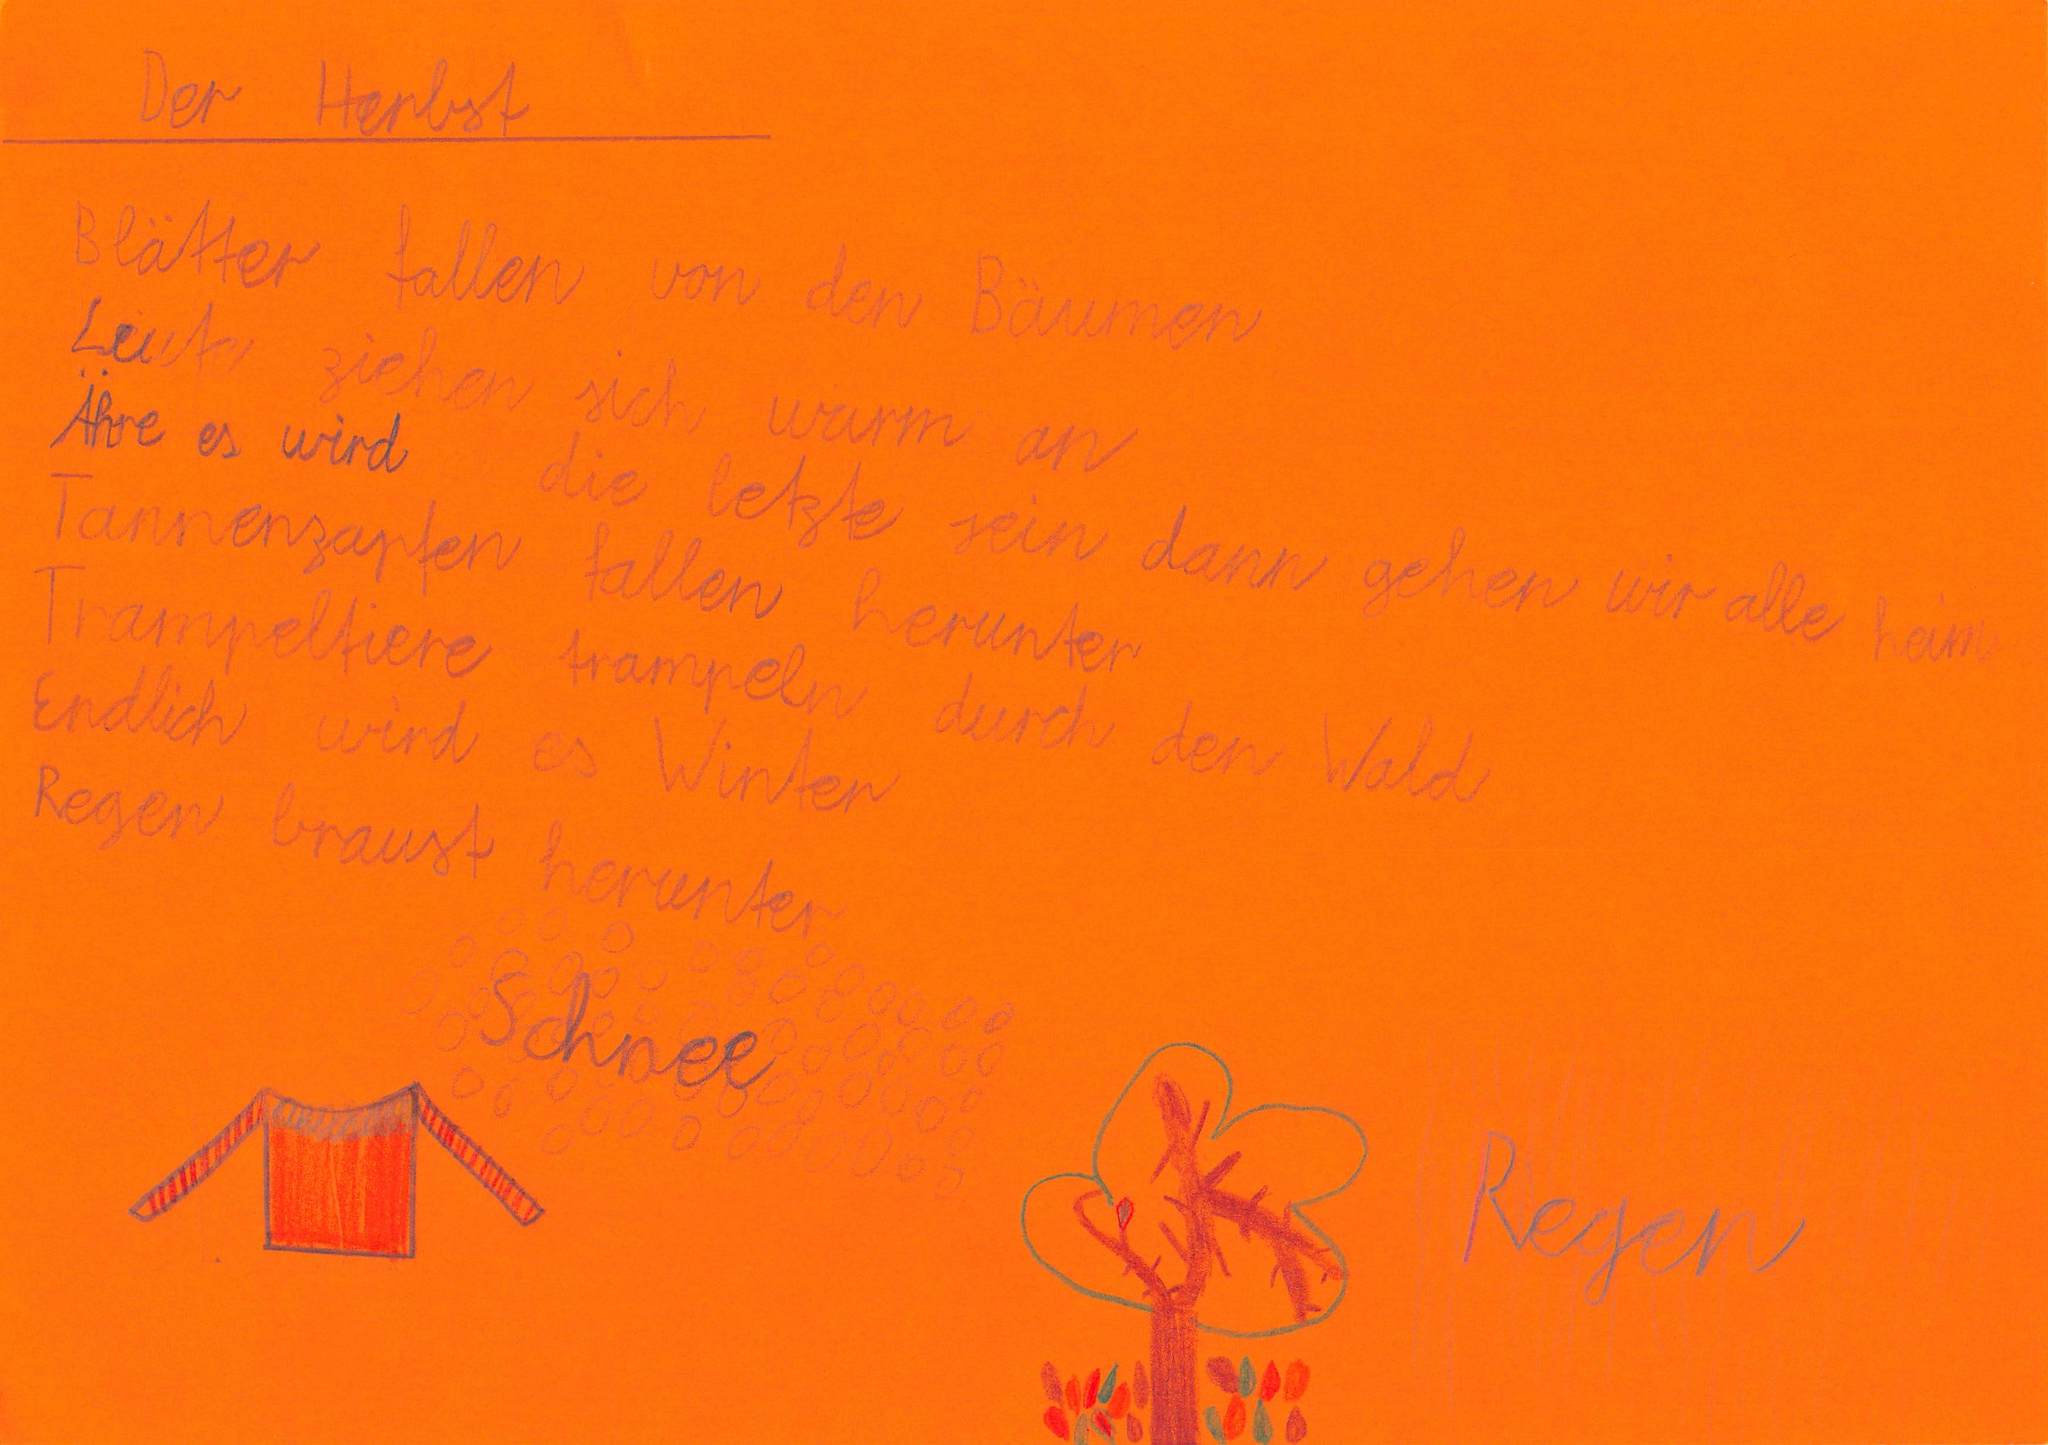 Der Herbst
Blätter fallen von den Bäumen
Leute ziehen sich warm an
Ähre es wird die letzte sein dann gehen wir alle heim
Tannenzapfen fallen herunter
Trampeltiere trampeln durch den Wald
Endlich wird es Winter
Regen braust herunter
Schnee
Regen